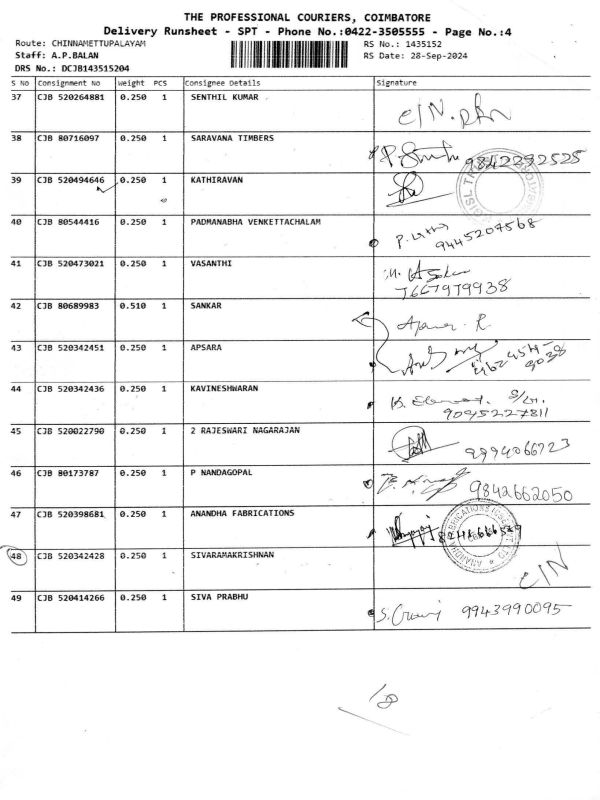 THE PROFESSIONAL COURIERS, COIMBATORE
Delivery Runsheet - SPT - Phone No.:0422-3505555 - Page No.:4
Route: CHINNAMETTUPALAYAM RS No.: 1435152
Staff: A.P.BALAN RS Date: 28-Sep-2024
DRS No.: DCJB143515204
S No Consignment No Weight PCS Consignee Details Signature
37 CJB 520264881 0.250 1 SENTHIL KUMAR C/N.
38 CJB 80716097 0.250 1 SARAVANA TIMBERS 9842292525
39 CJB 520494646 0.250 1 KATHIRAVAN
40 CJB 80544416 0.250 1 PADMANABHA VENKETTACHALAM 9445207568
41 CJB 520473021 0.250 1 VASANTHI 7667979938
42 CJB 80689983 0.510 1 SANKAR
43 CJB 520342451 0.250 1 APSARA
44 CJB 520342436 0.250 1 KAVINESHWARAN 9045227811
45 CJB 520022790 0.250 1 2 RAJESWARI NAGARAJAN 9994066723
46 CJB 80173787 0.250 1 P NANDAGOPAL 9842662050
47 CJB 520398681 0.250 1 ANANDHA FABRICATIONS
48 CJB 520342428 0.250 1 SIVARAMAKRISHNAN C/N
49 CJB 520414266 0.250 1 SIVA PRABHU 9943990095
18